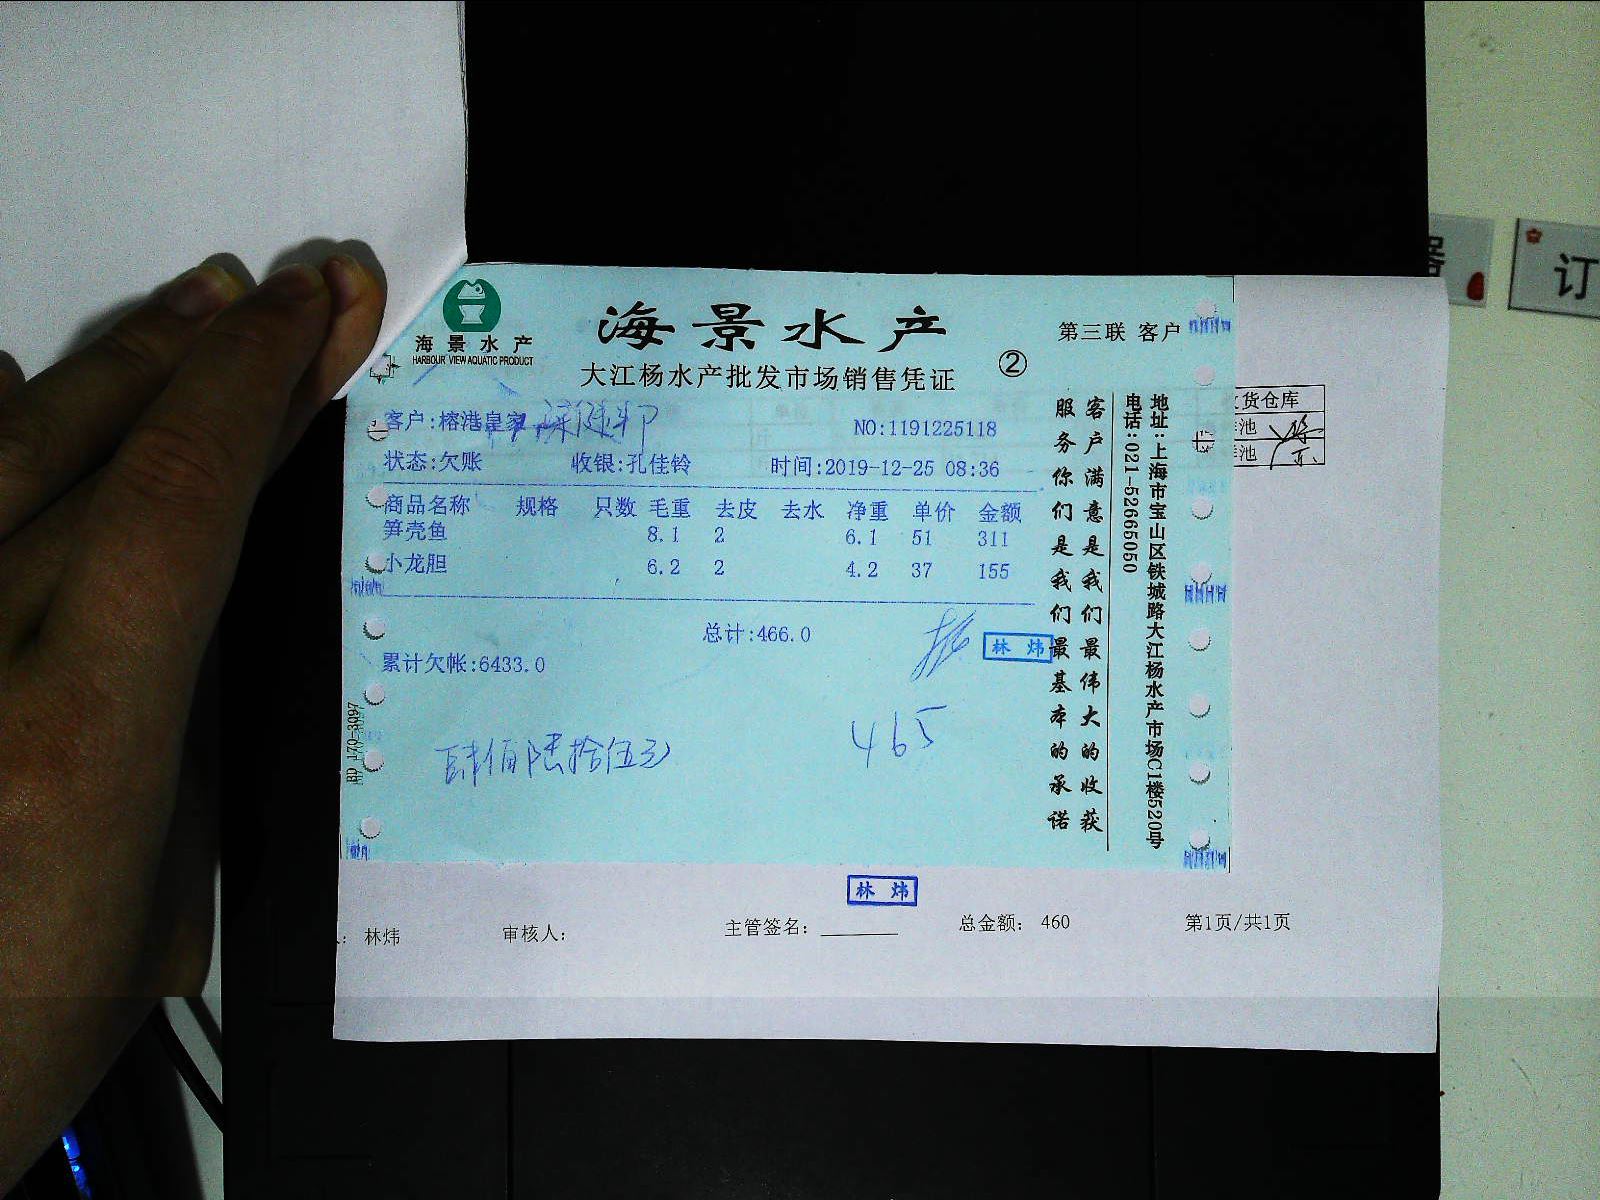 海景水产
HARBOUR VIEW AQUATIC PRODUCT
海景水产
大江杨水产批发市场销售凭证
②
第三联 客户
客户:榕港皇家
NO:1191225118
状态:欠账 收银:孔佳铃 时间:2019-12-25 08:36
商品名称 规格 只数 毛重 去皮 去水 净重 单价 金额
笋壳鱼 8.1 2 6.1 51 311
小龙胆 6.2 2 4.2 37 155
总计:466.0
林炜
累计欠帐:6433.0
465
肆佰陆拾伍
客户满意是我们最伟大的收获
服务你们是我们最基本的承诺
地址:上海市宝山区铁城路大江杨水产市场C1楼520号
电话:021-52665050
BD 170-3097
货仓库
池
池
林炜
林炜 审核人: 主管签名: 总金额: 460 第1页/共1页
订